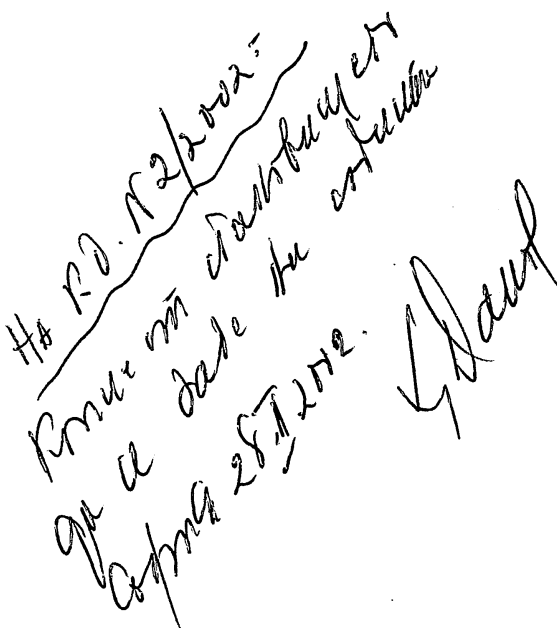 На к.д. № 2/2002г.
Копие от становището
да се даде на
София 28.II.2002.